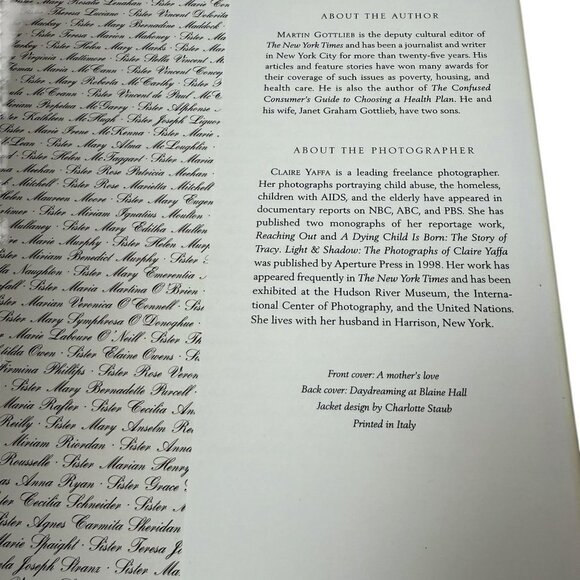 Mary Rosalie Lenahan · Sister Mary
Theresa Luciano · Sister Vincent Dolorita
Mackey · Sister Mary Bernadine Madden
Sister Teresa Marion Mahoney · Sister Mary
Sister Helen Mary Marks · Sister Mary
Virginia Mattimore · Sister Stella Vincent
Marie Mc Cann · Sister Vincent
Sister Mary Roberta Mc Carthy · Sister
Mc Crann · Sister Vincent de Paul Mc
Perpetua Mc Garry · Sister Alphonse
Sister Kathleen Mc Hugh · Sister Joseph Liguori
Marie Irene Mc Kenna · Sister Marie
Sister Mary Alma Mc Laughlin
Sister Helen Mc Taggart · Sister Maria
Meehan · Sister Rose Patricia Meechan
Mitchell · Sister Rose Marietta Mitchell
Helen Maureen Moore · Sister Mary Eugenia
Sister Miriam Ignatius Moullen
Mullaney · Sister Mary Editha Mullen
Marie Murphy · Sister Helen Murphy
Miriam Benedict Murphy · Sister
Naughton · Sister Mary Emerentia
Sister Maria Martina O'Brien
Marian Veronica O'Connell · Sister
Mary Symphrosa O'Donoghue · Sister
Marie Laboure O'Neill · Sister
Owen · Sister Elaine Owens · Sister
Firmina Phillips · Sister Rose
Sister Mary Bernadette Purcell
Maria Rafter · Sister Cecilia
Reilly · Sister Mary Anselm
Miriam Riordan · Sister Anna
Rousselle · Sister Marian Henry
Anna Ryan · Sister Grace
Cecilia Schneider · Sister
Sister Agnes Carmita Sheridan
Marie Spaight · Sister Teresa
Joseph Stranz · Sister
ABOUT THE AUTHOR
MARTIN GOTTLIEB is the deputy cultural editor of
The New York Times and has been a journalist and writer
in New York City for more than twenty-five years. His
articles and feature stories have won many awards for
their coverage of such issues as poverty, housing, and
health care. He is also the author of The Confused
Consumer's Guide to Choosing a Health Plan. He and
his wife, Janet Graham Gottlieb, have two sons.
ABOUT THE PHOTOGRAPHER
CLAIRE YAFFA is a leading freelance photographer.
Her photographs portraying child abuse, the homeless,
children with AIDS, and the elderly have appeared in
documentary reports on NBC, ABC, and PBS. She has
published two monographs of her reportage work,
Reaching Out and A Dying Child Is Born: The Story of
Tracy. Light & Shadow: The Photographs of Claire Yaffa
was published by Aperture Press in 1998. Her work has
appeared frequently in The New York Times and has been
exhibited at the Hudson River Museum, the Interna-
tional Center of Photography, and the United Nations.
She lives with her husband in Harrison, New York.
Front cover: A mother's love
Back cover: Daydreaming at Blaine Hall
Jacket design by Charlotte Staub
Printed in Italy